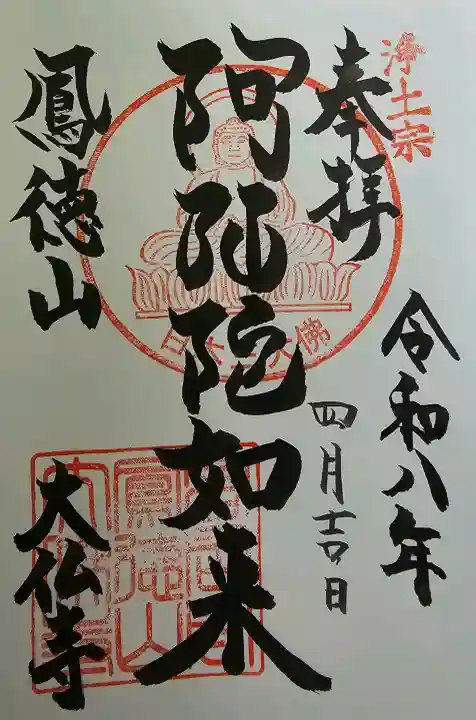 浄土宗
奉拝
令和八年
四月吉日
阿弥陀如来
日本三大佛
鳳徳山
大仏寺